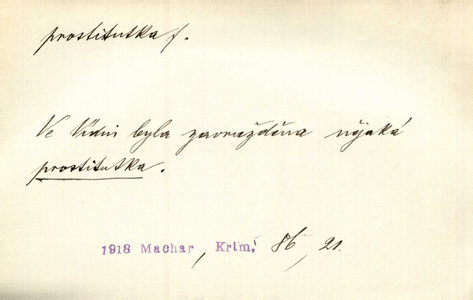 prostitutka f.
Ve Vídni byla zavražděna nějaká
prostitutka.
1918 Machar, Krim, 86, 21.